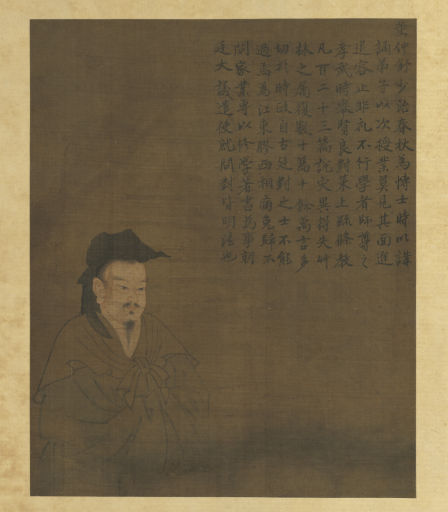 董仲舒少治春秋為博士時以講
誦弟子以次授業莫見其面進
退容止非礼不行學者師尊之
孝武時舉賢良對策上疏條教
凡百二十三篇說災異得失竹
林之屬復數十篇十餘萬言多
切於時政自古廷對之士不能
過焉為江東膠西相病免歸不
問家業專以修學著書為事朝
廷大議遣使就問對皆明法也